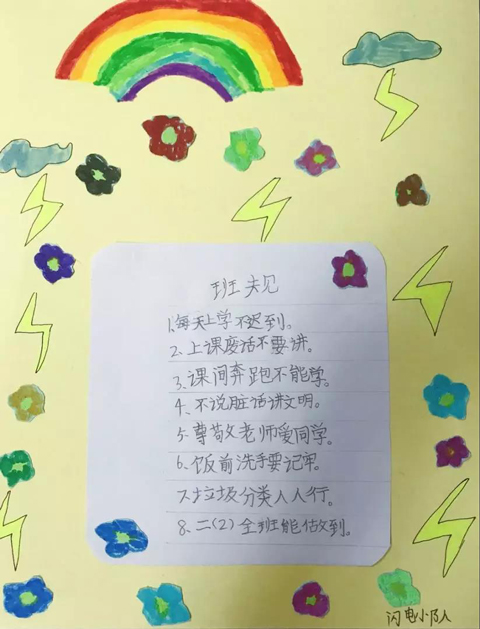 班规
1.每天上学不迟到。
2、上课废话不要讲。
3、课间奔跑不能学。
4、不说脏话讲文明。
5、尊敬老师爱同学。
6、饭前洗手要记牢。
7、垃圾分类人人行。
8、二(2)全班能做到。
闪电小队